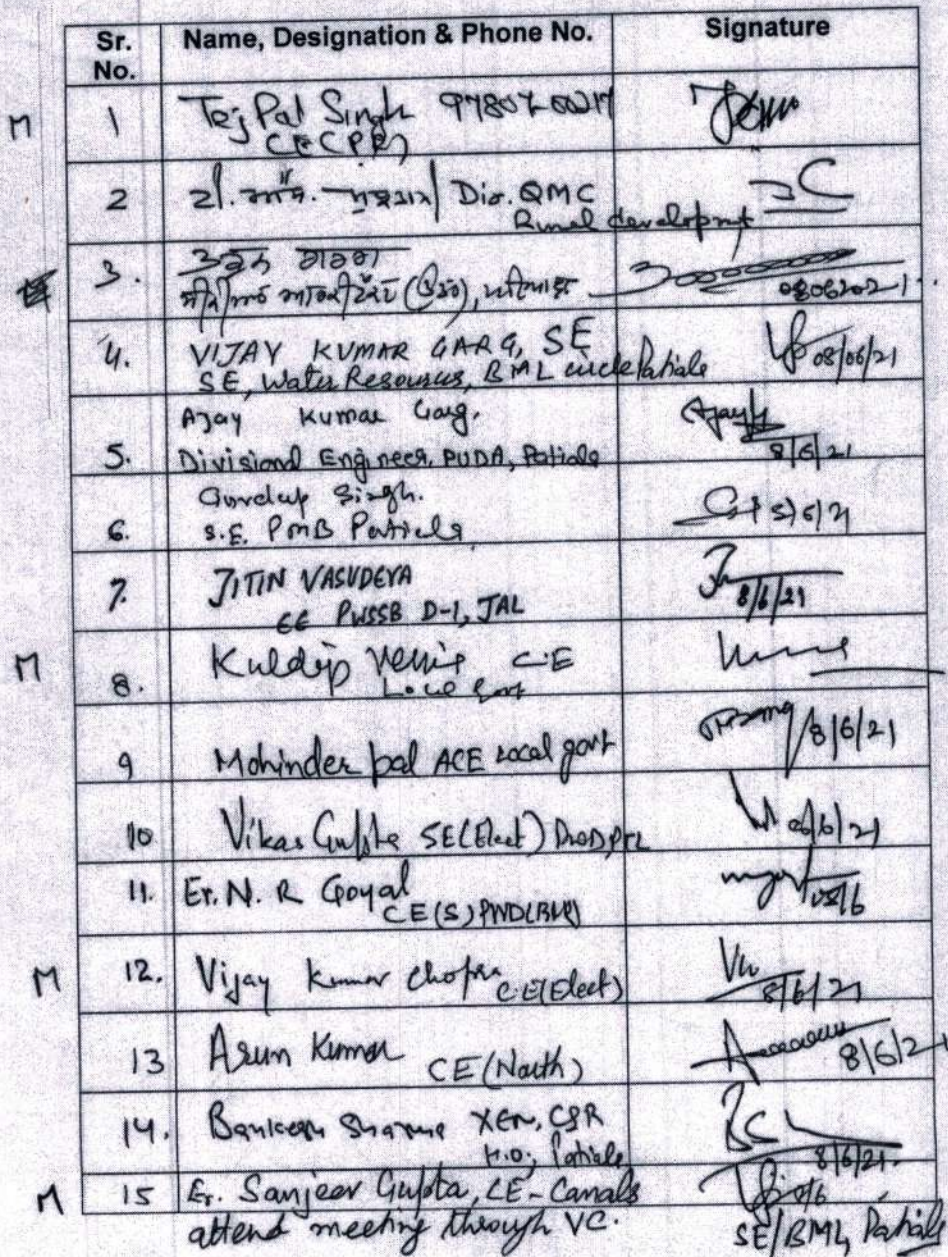 Sr. No. Name, Designation & Phone No. Signature
M 1 Tej Pal Singh
CE(PR)
2 Dir. QMC
Rural development
3. 08062021
4. VIJAY KUMAR GARG, SE 08/06/21
SE, Water Resources, BML circle Patiala
Ajay Kumar Garg.
5. Divisional Engineer, PUDA, Patiala 8/6/21
Gurdeep Singh.
6. S.E. PMB Patiala
7. JITIN VASUDEVA
EE PWSSB D-1, JAL 8/6/21
M 8. Kuldip Verma C.E
Local Govt
9 Mohinder pal ACE Local govt 8/6/21
10 Vikas Gupta SE(Elect)
11. Er. N. R Goyal
CE(S) PWD(B&R) 08/6
M 12. Vijay Kumar Chopra C.E(Elect) 8/6/21
13 Arun Kumar CE(North) 8/6/21
14. Sharma XEN, CSR
H.O; Patiala 8/6/21.
M 15 Er. Sanjeev Gupta, CE-Canals
attend meeting through VC. SE/BML, Patiala